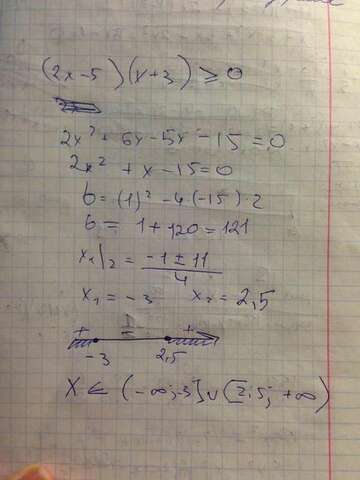 (2x-5)(x+3) ≥ 0
2x² + 6x - 5x - 15 = 0
2x² + x - 15 = 0
б = (1)² - 4·(-15)·2
б = 1 + 120 = 121
x₁/₂ = (-1 ± 11)/4
x₁ = -3 x₂ = 2,5
+ - +
-3 2,5
X ∈ (-∞; -3] ∪ [2,5; +∞)